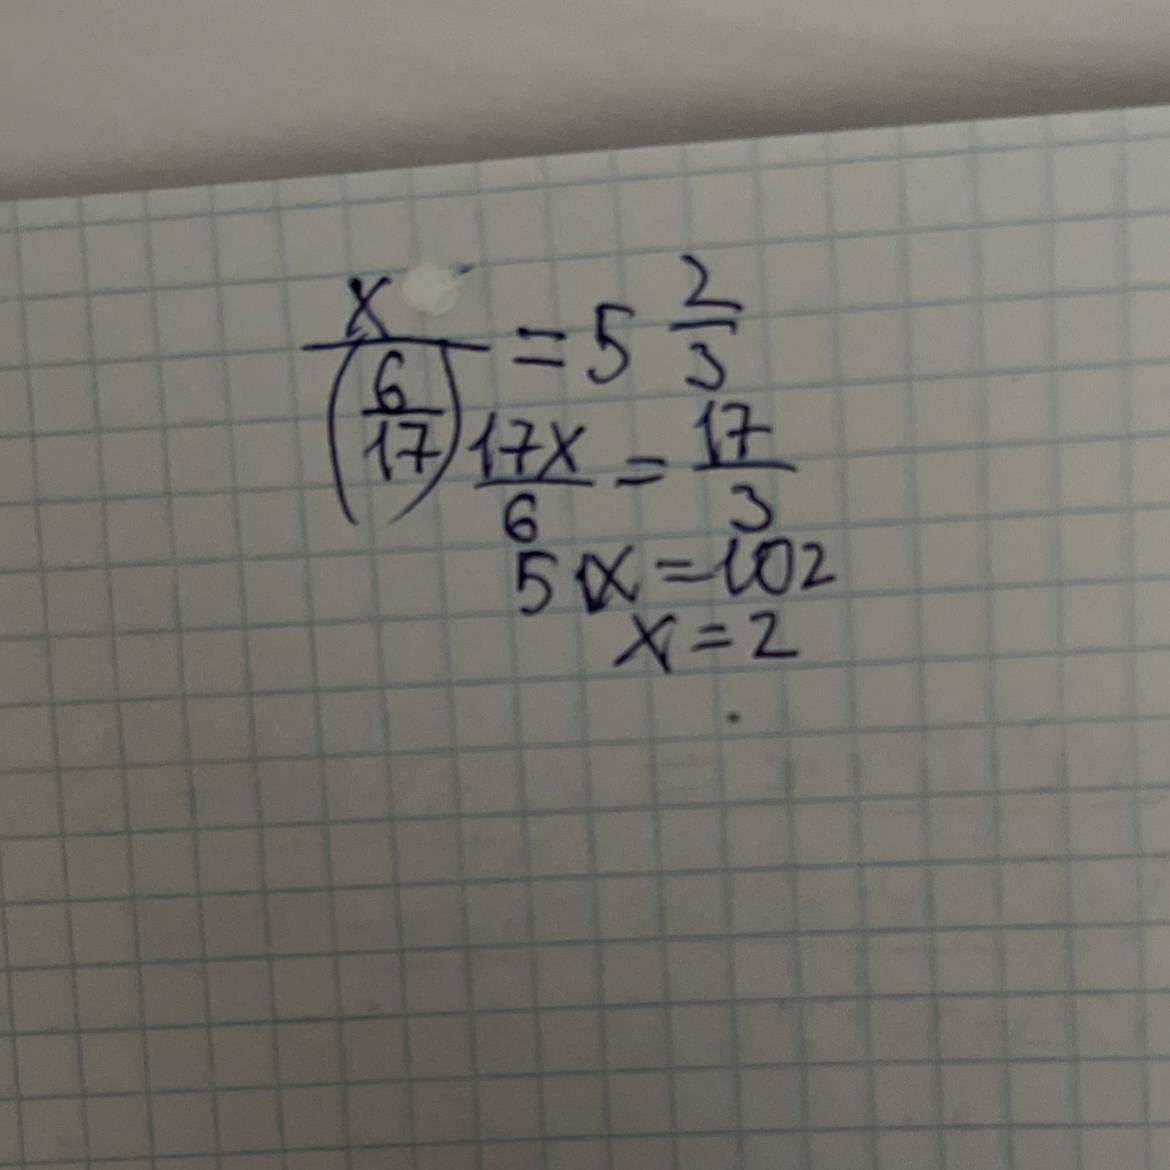 x/(6/17) = 5 2/3
17x/6 = 17/3
51x = 102
x = 2